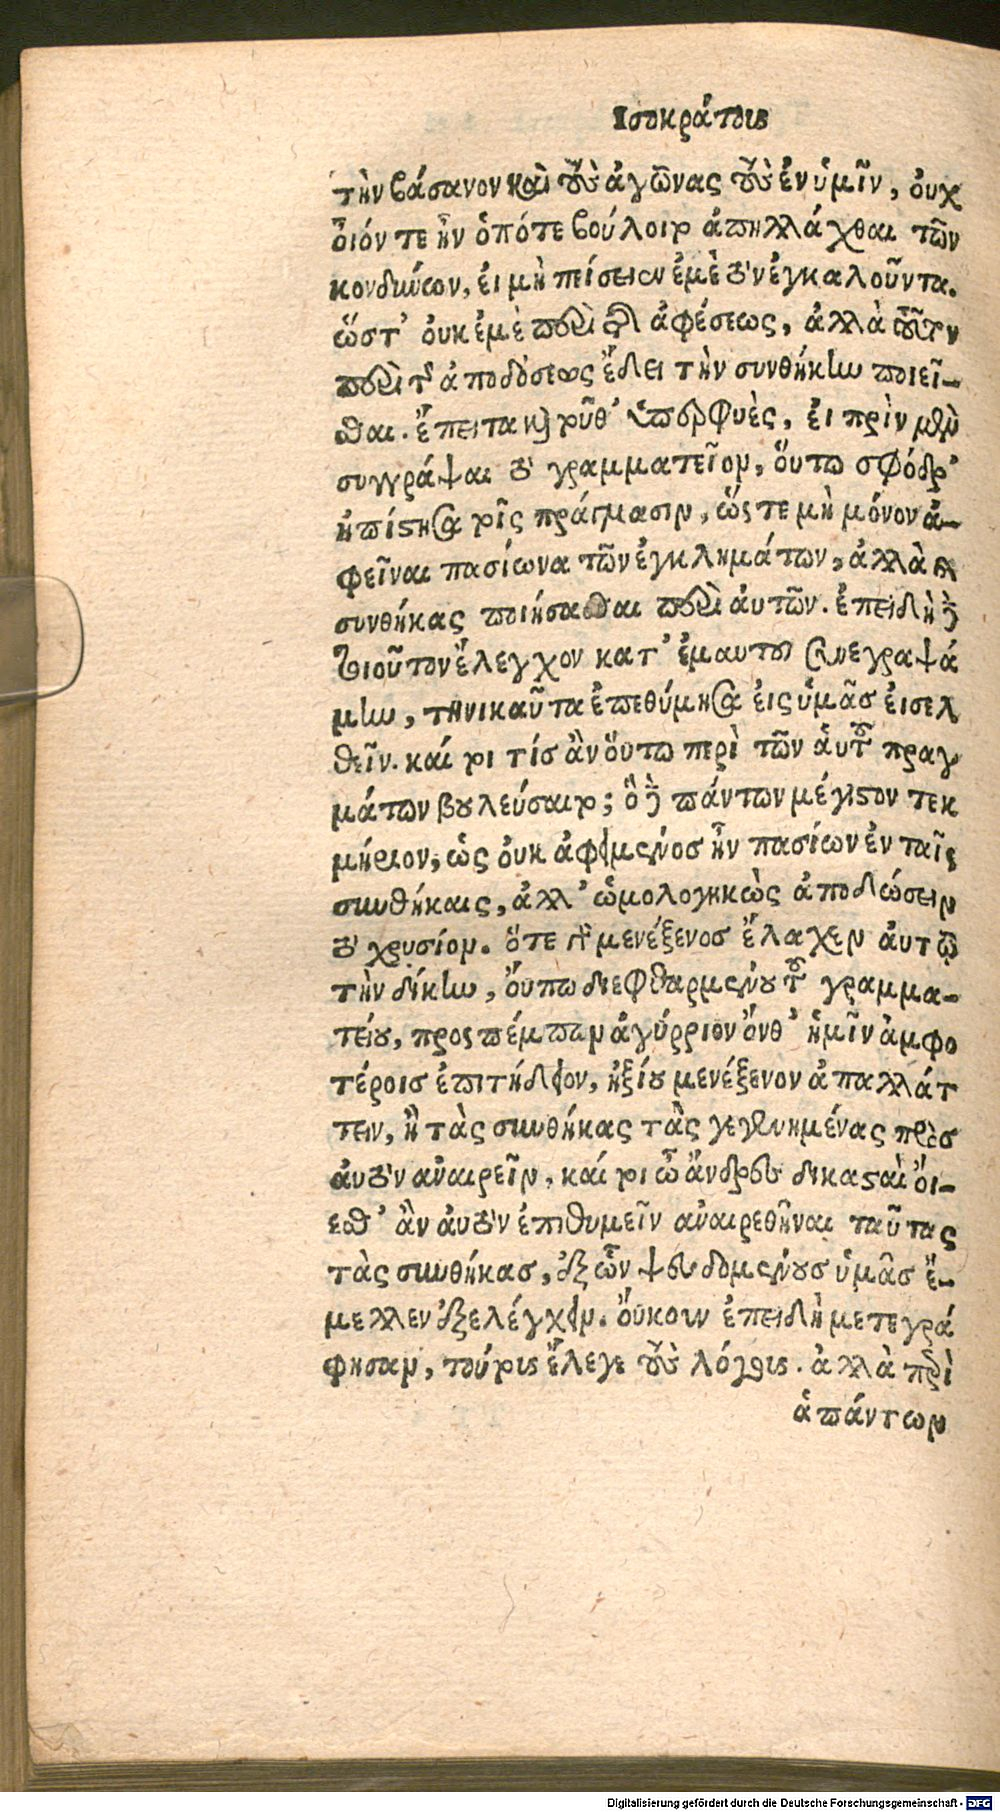 Ισοκράτους
τὴν βάσανον καὶ τοὺς ἀγῶνας τοὺς ἐν ὑμῖν, οὐχ
οἷόν τε ἦν ὁπότε βούλοιτο ἀπηλλάχθαι τῶν
κινδύνων, εἰ μὴ πείσειεν ἐμὲ τὸν ἐγκαλοῦντα.
ὥστ' οὐκ ἐμὲ περὶ τῆς ἀφέσεως, ἀλλὰ τοῦτον
περὶ τῆς ἀποδόσεως ἔδει τὴν συνθήκην ποιεῖ-
σθαι. ἔπειτα καὶ τοῦθ' ὑπερφυὲς, εἰ πρὶν μὲν
συγγράψαι τὸ γραμματεῖον, οὕτω σφόδρ'
ἠπίστησα τοῖς πράγμασιν, ὥστε μὴ μόνον ἀ-
φεῖναι πασίωνα τῶν ἐγκλημάτων, ἀλλὰ καὶ
συνθήκας ποιήσασθαι περὶ αὐτῶν. ἐπειδὴ δὲ
τοιοῦτον ἔλεγχον κατ' ἐμαυτοῦ συνεγραψά
μην, τηνικαῦτα ἐπεθύμησα εἰς ὑμᾶς εἰσελ
θεῖν. καί τοι τίς ἂν οὕτω περὶ τῶν αὑτοῦ πραγ
μάτων βουλεύσαιτο; ὃ δὲ πάντων μέγιστον τεκ
μήριον, ὡς οὐκ ἀφειμένος ἦν πασίων ἐν ταῖς
συνθήκαις, ἀλλ' ὡμολογηκὼς ἀποδώσειν
τὸ χρυσίον. ὅτε γὰρ μενέξενος ἔλαχεν αὐτῷ
τὴν δίκην, οὔπω διεφθαρμένου τοῦ γραμμα-
τείου, προσπέμπων ἀγύρριον ὄνθ' ἡμῖν ἀμφο
τέροις ἐπιτήδειον, ἠξίου μενέξενον ἀπαλλάτ
τειν, ἢ τὰς συνθήκας τὰς γεγενημένας πρὸς
αὐτὸν ἀναιρεῖν. καί τοι ὦ ἄνδρες δικασταὶ οἴ-
εσθ' ἂν αὐτὸν ἐπιθυμεῖν ἀναιρεθῆναι ταύτας
τὰς συνθήκας, ἐξ ὧν ψευδομένους ὑμᾶς ἔ-
μελλεν ἐξελέγχειν. οὔκουν ἐπειδὴ μετεγρά
φησαν, τούτους ἔλεγε τοὺς λόγους. ἀλλὰ περὶ
ἁπάντων